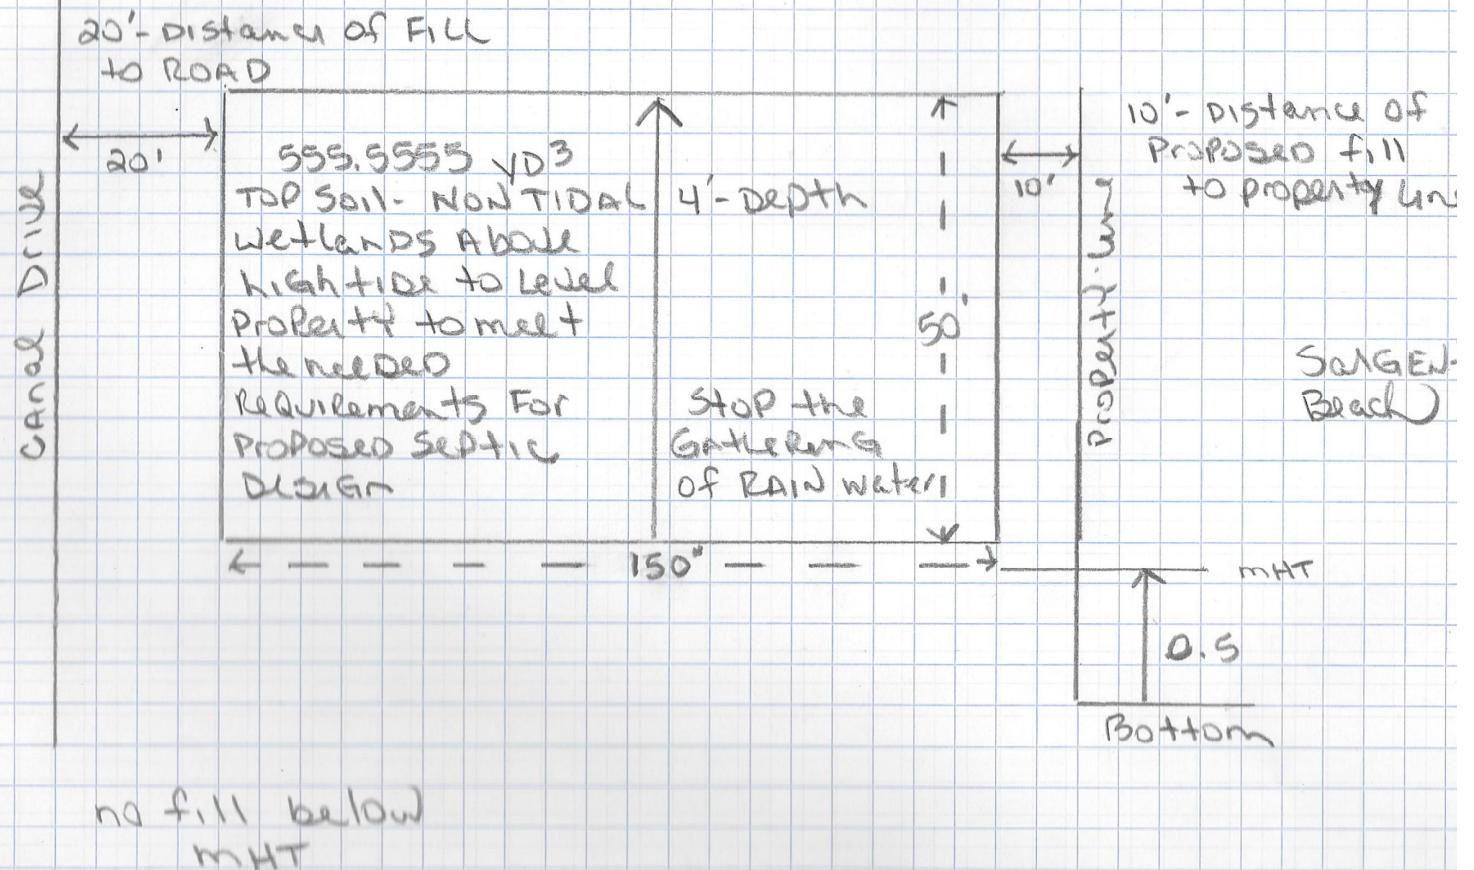 20'- Distance of Fill
to ROAD
20'
Canal Drive
555.5555 YD3
TOP SOIL- NON TIDAL
WetLanDS Above
high tiDe to Level
PropeRty to meet
the neeDeD
RequiRements FoR
PRoposeD Septic
Design
4'- Depth
Stop the
GatheRinG
of RAIN water
50'
150"
10'
10'- Distance of
PRoposeD fill
to property Lin
Property Line
SARGEN
Beach
MHT
0.5
Bottom
no fill below
MHT